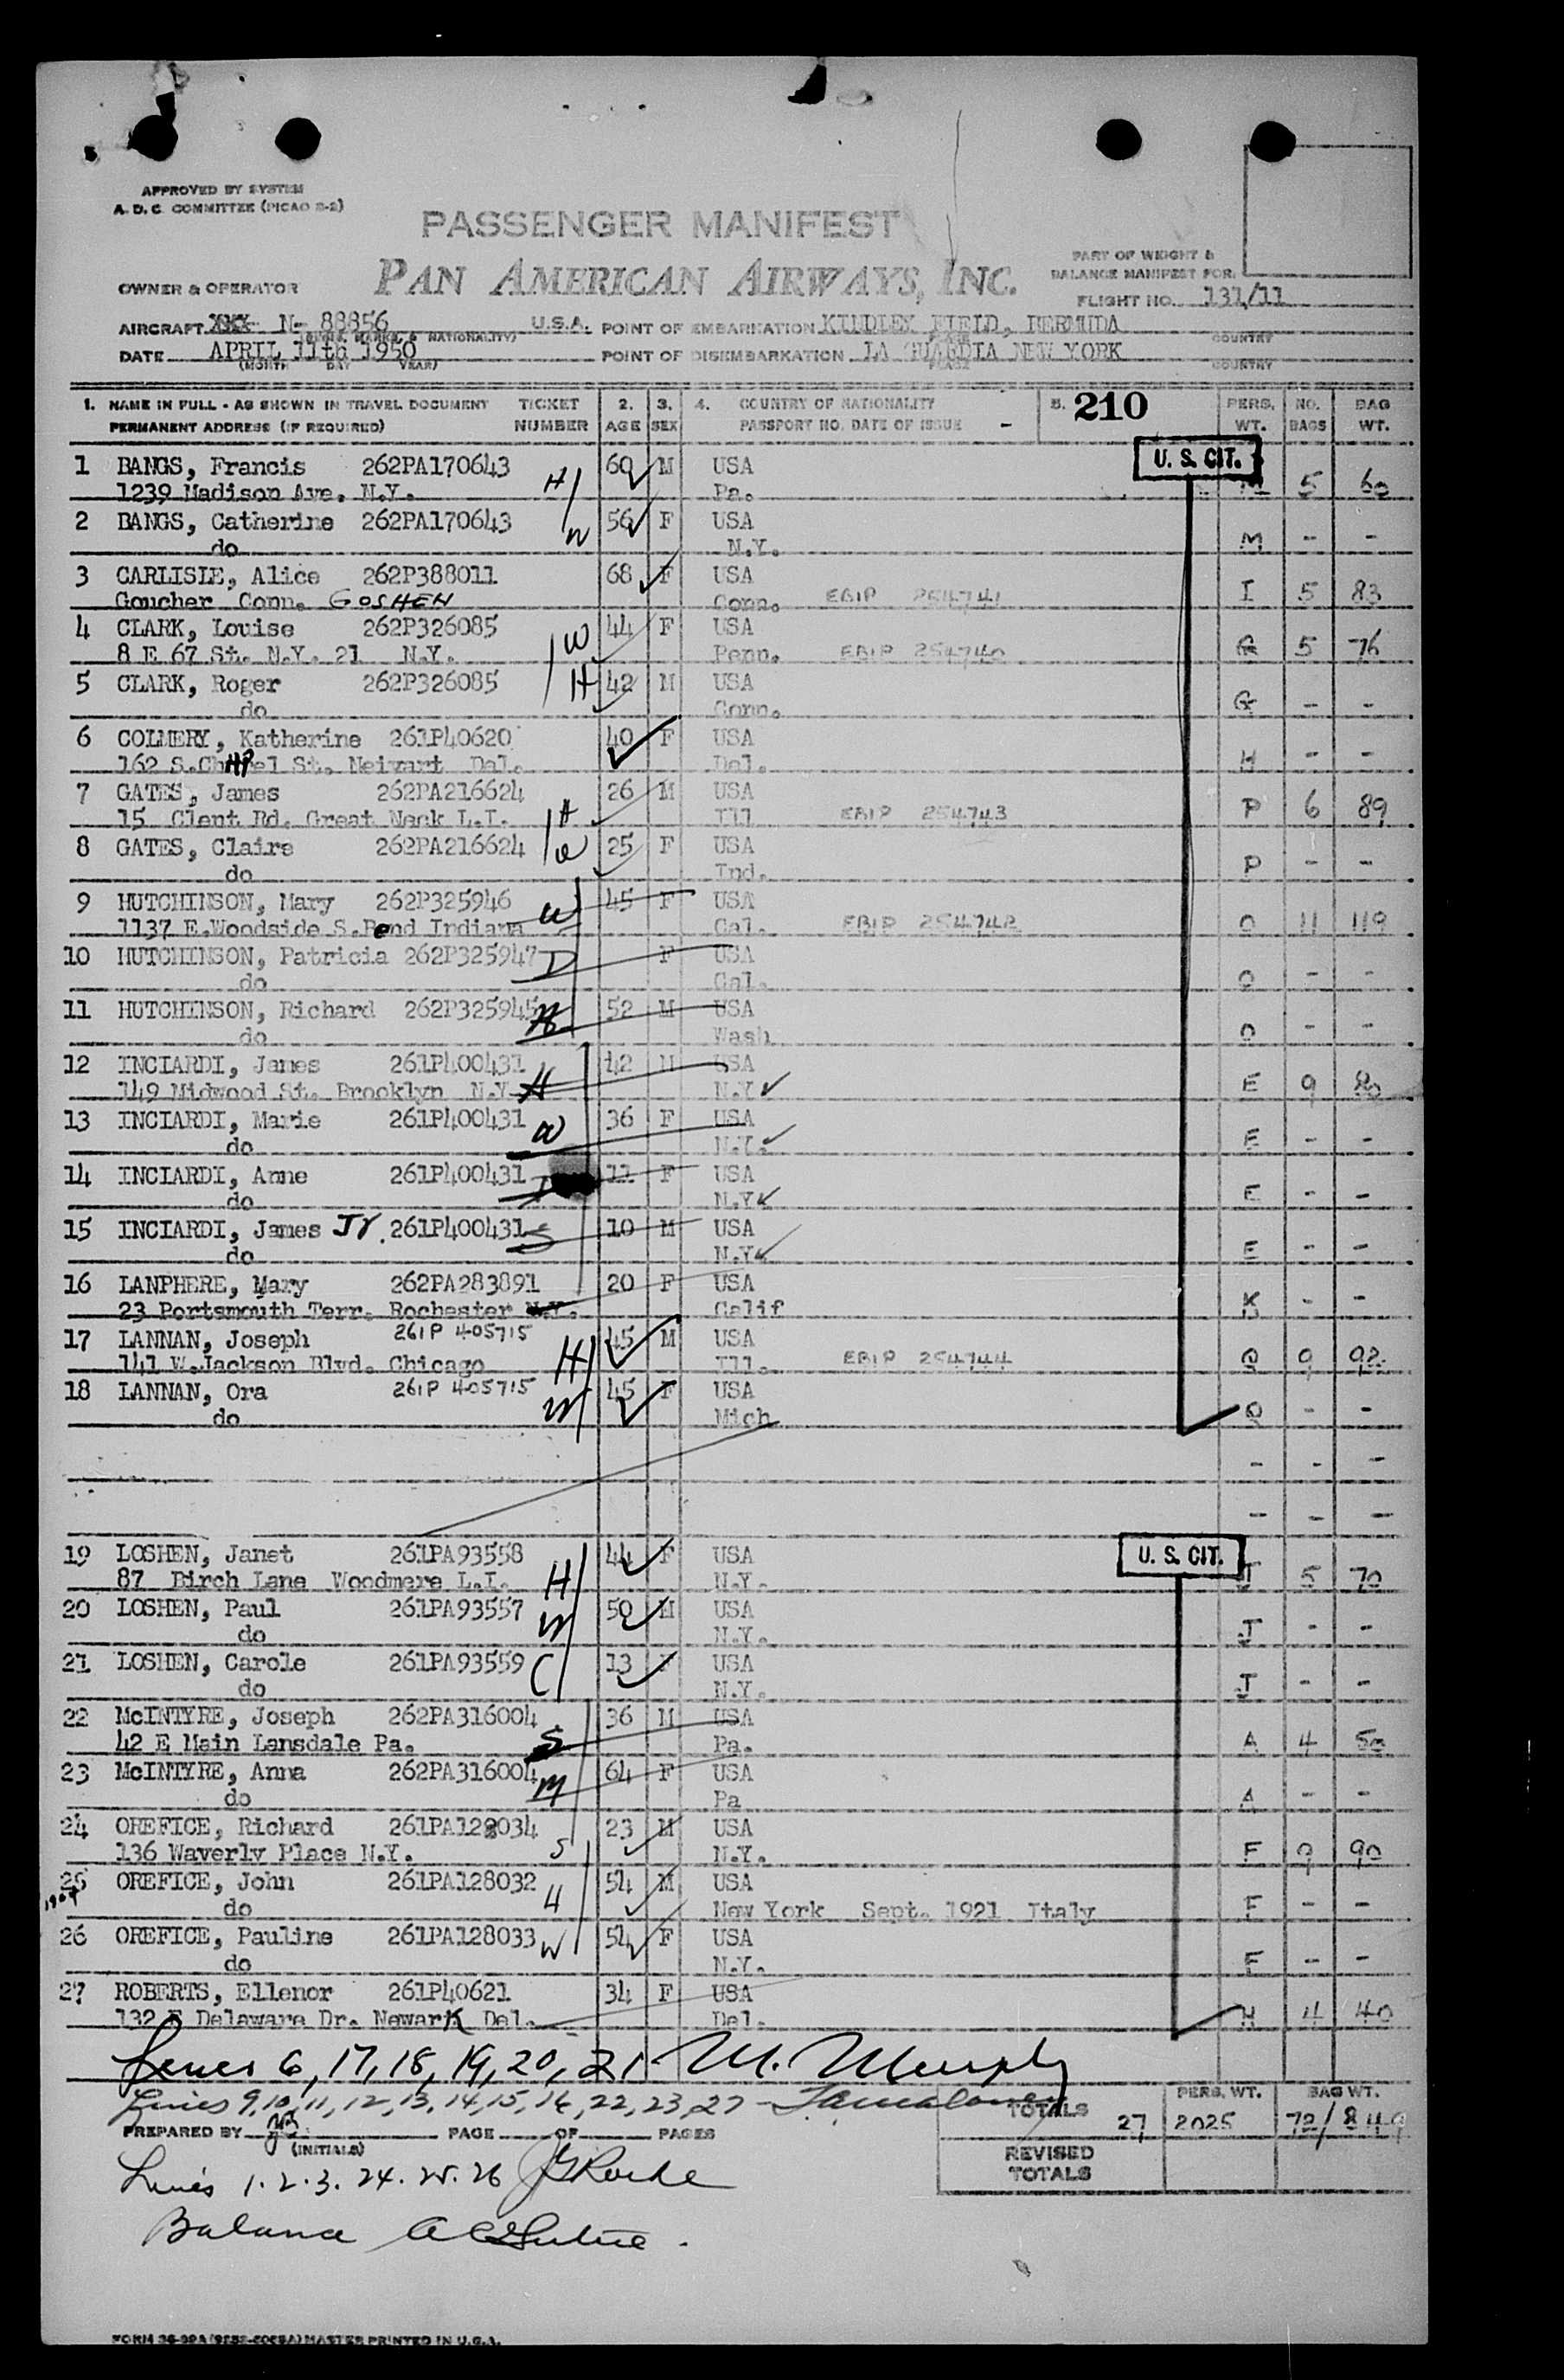 APPROVED BY SYSTEM
A. D. C. COMMITTEE (PICAO S-2)
PASSENGER MANIFEST
PAN AMERICAN AIRWAYS, INC.
PART OF WEIGHT &
BALANCE MANIFEST FOR
OWNER & OPERATOR
FLIGHT NO. 131/11
AIRCRAFT XXX N- 88856 U.S.A. POINT OF EMBARKATION KINDLEY FIELD, BERMUDA
MARKS, & NATIONALITY) COUNTRY
DATE APRIL 11th 1950 POINT OF DISEMBARKATION LA GUARDIA NEW YORK
(MONTH DAY YEAR) PLACE COUNTRY
1. NAME IN FULL - AS SHOWN IN TRAVEL DOCUMENT TICKET 2. 3. 4. COUNTRY OF NATIONALITY 5. 210 PERS. NO. BAG
PERMANENT ADDRESS (IF REQUIRED) NUMBER AGE SEX PASSPORT NO. DATE OF ISSUE - WT. BAGS WT.
U. S. CIT.
1 BANGS, Francis 262PA170643 60 M USA
1239 Madison Ave. N.Y. H Pa. M 5 60
2 BANGS, Catherine 262PA170643 56 F USA
do W N.Y. M - -
3 CARLISLE, Alice 262P388011 68 F USA
Goucher Conn. GOSHEN Conn. EBIP 254741 I 5 83
4 CLARK, Louise 262P326085 W 44 F USA
8 E 67 St. N.Y. 21 N.Y. Penn. EBIP 254740 G 5 76
5 CLARK, Roger 262P326085 H 42 M USA
do Conn. G - -
6 COLMERY, Katherine 261P40620 40 F USA
162 S.ChAPel St. Neiwart Del. Del. H - -
7 GATES, James 262PA216624 26 M USA
15 Clent Rd. Great Neck L.I. H Ill EBIP 254743 P 6 89
8 GATES, Claire 262PA216624 W 25 F USA
do Ind. P - -
9 HUTCHINSON, Mary 262P325946 W 45 F USA
1137 E.Woodside S.Bend Indiana Cal. EBIP 254742 O 11 119
10 HUTCHINSON, Patricia 262P325947 D F USA
do Cal. O - -
11 HUTCHINSON, Richard 262P325945 H 52 M USA
do Wash O - -
12 INCIARDI, James 261P400431 42 M USA
149 Midwood St. Brooklyn N.Y. H N.Y. E 9 80
13 INCIARDI, Marie 261P400431 W 36 F USA
do N.Y. E - -
14 INCIARDI, Anne 261P400431 11 F USA
do N.Y. E - -
15 INCIARDI, James Jr. 261P400431 S 10 M USA
do N.Y. E - -
16 LANPHERE, Mary 262PA283891 20 F USA
23 Portsmouth Terr. Rochester N.Y. Calif K - -
17 LANNAN, Joseph 261P 405715 45 M USA
141 W.Jackson Blvd. Chicago H Ill. EBIP 254744 Q 9 92
18 LANNAN, Ora 261P 405715 45 F USA
do W Mich Q - -
- - -
- - -
U. S. CIT.
19 LOSHEN, Janet 261PA93558 44 F USA
87 Birch Lane Woodmere L.I. H N.Y. J 5 70
20 LOSHEN, Paul 261PA93557 W 50 M USA
do N.Y. J - -
21 LOSHEN, Carole 261PA93559 C 13 F USA
do N.Y. J - -
22 McINTYRE, Joseph 262PA316004 36 M USA
42 E Main Lansdale Pa. S Pa. A 4 50
23 McINTYRE, Anna 262PA316004 M 64 F USA
do Pa A - -
24 OREFICE, Richard 261PA128034 23 M USA
136 Waverly Place N.Y. S N.Y. F 9 90
25 OREFICE, John 261PA128032 H 54 M USA
do New York Sept. 1921 Italy F - -
26 OREFICE, Pauline 261PA128033 W 54 F USA
do N.Y. F - -
27 ROBERTS, Ellenor 261P40621 34 F USA
132 E Delaware Dr. Newark Del. Del. H 4 40
Lines 6, 17, 18, 19, 20, 21 M. Murphy
PERS. WT. BAG WT.
Lines 9, 10, 11, 12, 13, 14, 15, 16, 22, 23, 27 -
TOTALS 27 2025 72/849
PREPARED BY PAGE OF PAGES
(INITIALS)
REVISED
TOTALS
Lines 1. 2. 3. 24. 25. 26
Balance